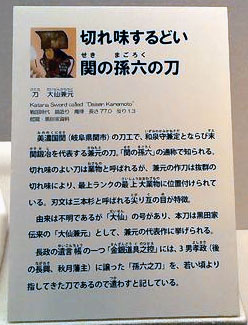 切れ味するどい
せき まごろく
関の孫六の刀
刀 大仙兼元
Katana Sword called "Daisen Kanemoto"
美濃国関(岐阜県関市)の刀工で、和泉守兼定とならび末
関鍛冶を代表する兼元の刀。「関の孫六」の通称で知られる。
切れ味のよい刀は業物と呼ばれるが、兼元の作刀は抜群の
切れ味により、最上ランクの最上大業物に位置付けられて
いる。刃文は三本杉と呼ばれる尖り互の目が特徴。
由来は不明であるが「大仙」の号があり、本刀は黒田家
伝来の「大仙兼元」として、兼元の代表作に挙げられる。
長政の遺言帳の一つ「金銀道具之控」には、3男孝政(後
の長興、秋月藩主)に譲った「孫六之刀」を、若い頃より
指してきた刀であるので遣わすと記している。